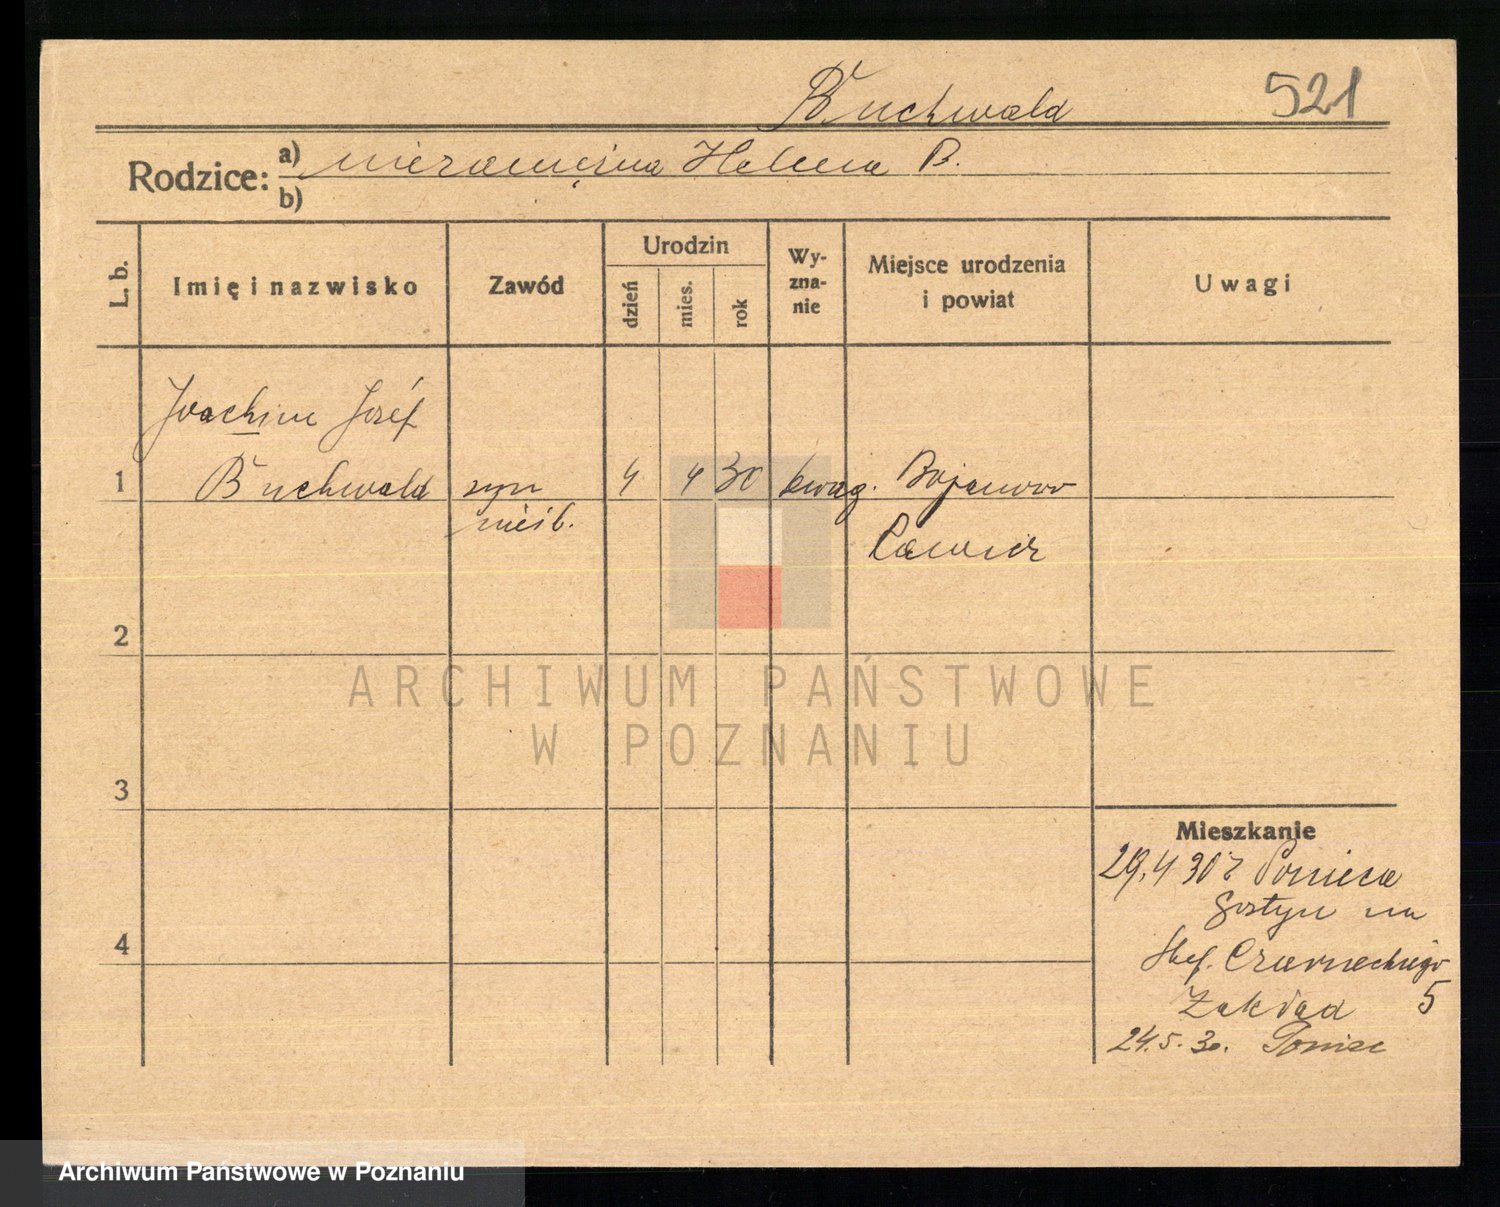 Buchwald 521
Rodzice: a) niezamężna Helena B.
b)
L. b. Imię i nazwisko Zawód Urodzin dzień mies. rok Wy-zna-nie Miejsce urodzenia i powiat Uwagi
Joachim Józef
1 Buchwald syn 4 4 30 ewag. Bojanowo
nieśl. Rawicz
2
ARCHIWUM PAŃSTWOWE
W POZNANIU
3
Mieszkanie
29.4 30 z Ponieca
Gostyn
4
Stef. Czarneckiego
Zakład 5
24.5.30. Poniec
Archiwum Państwowe w Poznaniu